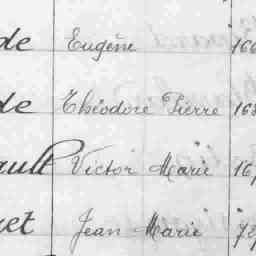 de Eugène 166
de Théodore Pierre 168
ault Victor Marie 167
ret Jean Marie